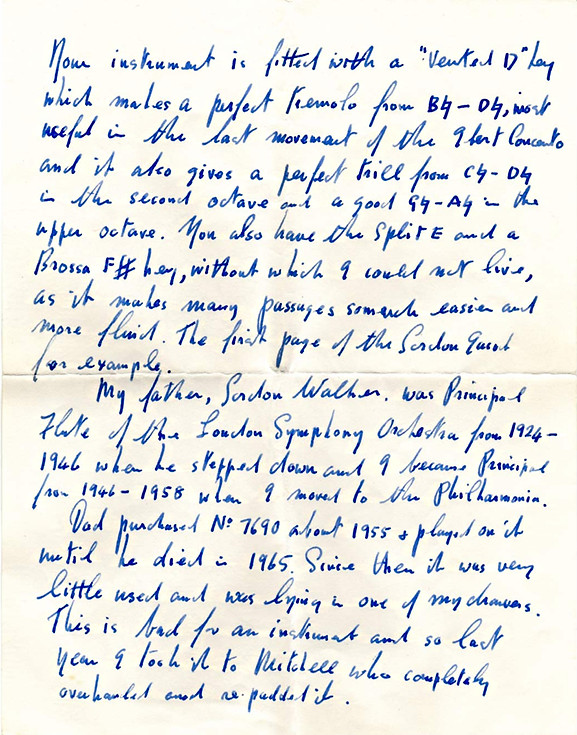 Your instrument is fitted with a "Vented D" key
which makes a perfect tremolo from B♮ - D♮, most
useful in the last movement of the Ibert Concerto
and it also gives a perfect trill from C♮ - D♮
in the second octave and a good G♮ - A♮ in the
upper octave. You also have the Split E and a
Brossa F# key, without which I could not live,
as it makes many passages so much easier and
more fluid. The first page of the Gordon
for example.
My father, Gordon Walker, was Principal
Flute of the London Symphony Orchestra from 1924 -
1946 when he stepped down and I became Principal
from 1946 - 1958 when I moved to the Philharmonia.
Dad purchased Nº 7690 about 1955 & played on it
until he died in 1965. Since then it was very
little used and was lying in one of my drawers.
This is bad for an instrument and so last
year I took it to Mitchell who completely
overhauled and re-padded it.